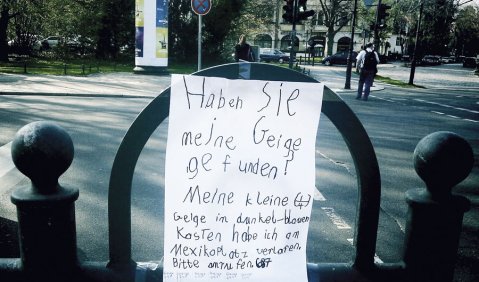 Haben Sie
meine Geige
gefunden?
Meine kleine
Geige im dunkel-blauen
Kasten habe ich am
Mexikoplatz verloren.
Bitte anrufen